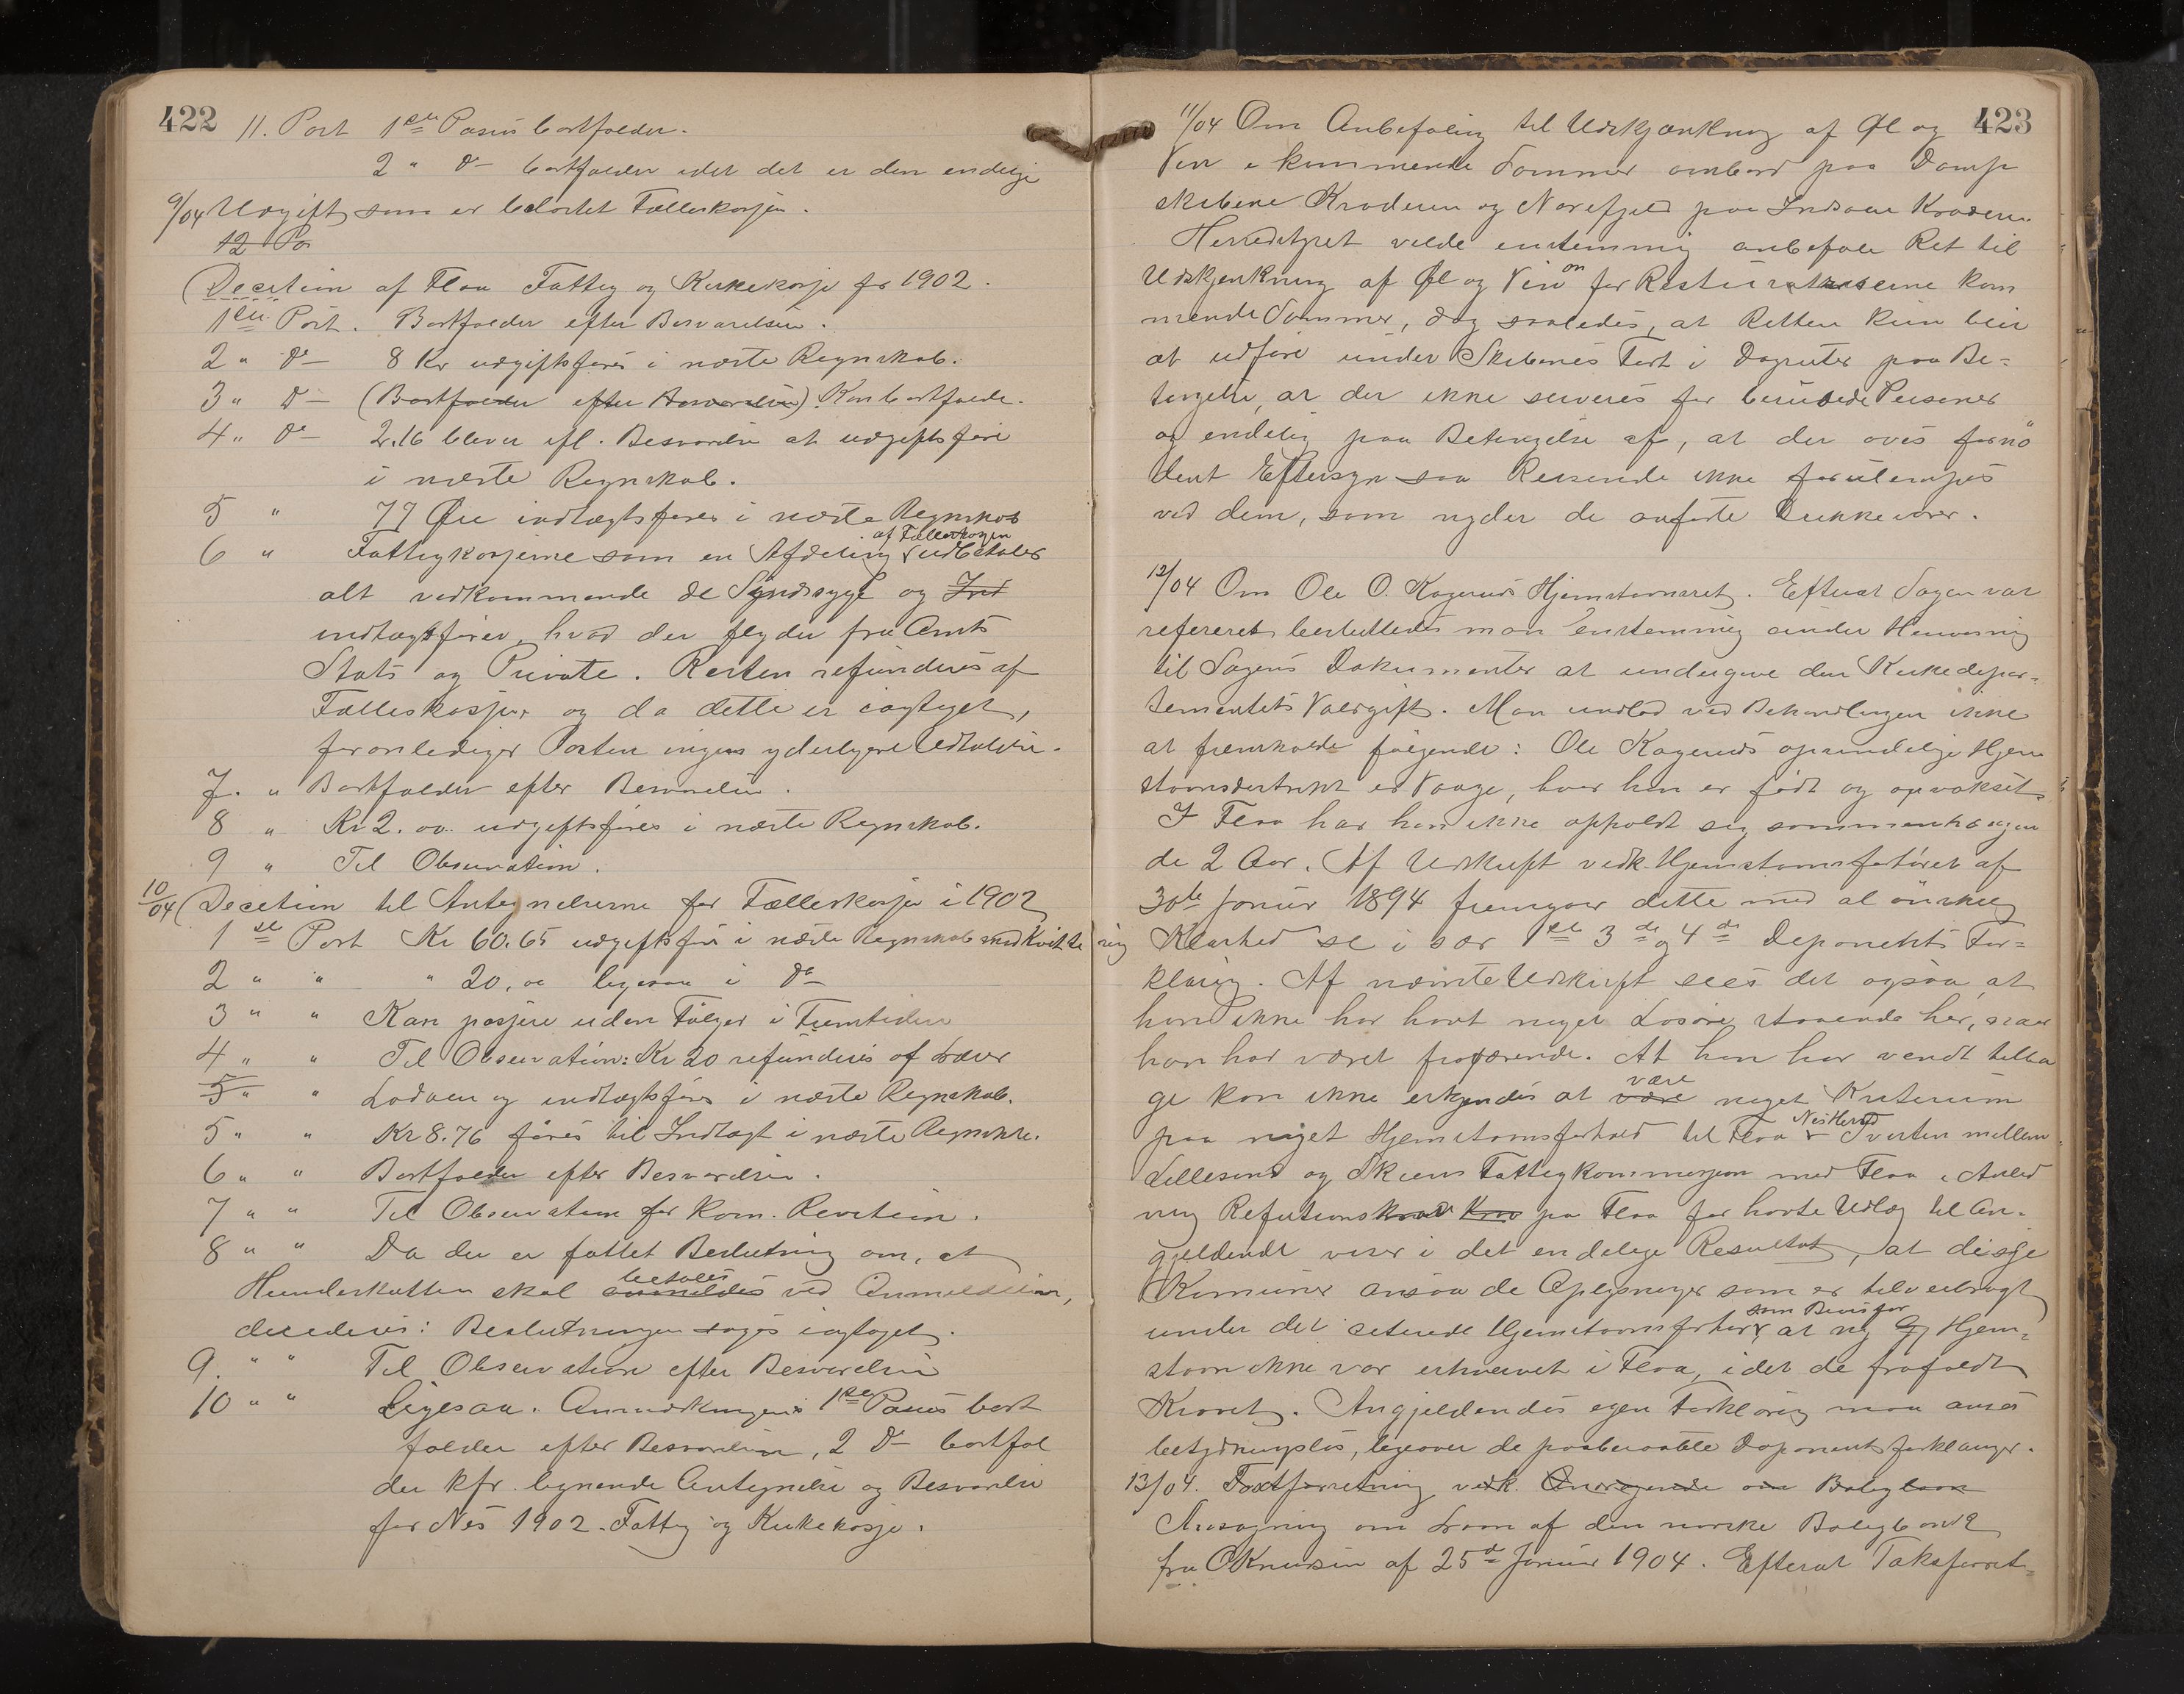 422
11. Post 1ste Passus bortfalder.
2 " Do bortfalder idet det er den endelige
9/04 Udgift som er belastet Fælleskassen.
12 Po
Decition af Flaa Fattig og Kirkekasse for 1902.
1ste Post. Bortfalder efter Besvarelsen.
2 " Do 8 Kr udgiftsføres i næste Regnskab.
3 " Do (Bortfalder efter Besvarelsen). Kan bortfalde.
4 " Do 2.16 bliver ifl. Besvarelse at udgiftsføre
i næste Regnskab.
5 " 77 Øre indtægtsføres i næste Regnskab
6 " Fattigkasserne som en Afdeling af Fælleskassen udbetaler
alt vedkommende de Sindssyge og Ind
indtægtsfører, hvad der flyder fra Amts
Stats og Private. Resten refunderes af
Fælleskassen og da dette er iagtaget,
foranlediger Posten ingen yderligere Udtalelse.
7. " Bortfalder efter Besvarelsen.
8 " Kr 2.00 udgiftsføres i næste Regnskab.
9 " Til Observation.
10/04 Decition til Antegnelserne for Fælleskassen i 1902
1ste Post Kr 60.65 udgiftsføres i næste Regnskab med Kvittering
2 " " " 20.00 ligesaa i Do
3 " " Kan passere uden Følger i Fremtiden
4 " " Til Observation: Kr 20 refunderes af Lærer
5 " " Lodaen og indtægtsføres i næste Regnskab.
5 " " Kr 8.76 føres til Indtægt i næste Regnskab.
6 " " Bortfalder efter Besvarelsen.
7 " " Til Observation for Kom. Revition.
8 " " Da der er fattet Beslutning om, at
Hundeskatten skal anmeldes betales ved Anmeldelsen,
decideres: Beslutningen søges iagtaget.
9. " " Til Observation efter Besvarelsen
10 " " Ligesaa. Anmærkningens 1ste Passus bort
falder efter Besvarelsen, 2 Do bortfal
der kfr. lignende Antegnelse og Besvarelse
for Nes 1902. Fattig og Kirkekasse.
423
11/04 Om Anbefaling til Udskjænkning af Øl og
Vin i kommende Sommer ombord paa Damp
skibene Krøderen og Norefjeld paa Indsøen Krøderen.
Herredstyret vilde enstemmig anbefale Ret til
Udskjænkning af Øl og Vin for Restauratricerne kom
mende Sommer, dog saaledes, at Retten kun blir
at udføre under Skibenes Fart i Dagruter paa Be=
tingelse, at der ikke serveres for berusede Personer
og endelig paa Betingelse af, at der øves fornø
dent Eftersyn saa Reisende ikke forulempes
ved dem, som nyder de anførte Drikkevarer.
12/04 Om Ole O. Kageruds Hjemstavnsret. Efterat Sagen var
refereret besluttedes man enstemmig under Henvisning
til Sagens Dokumenter at undergive den Kirkedepar=
tementets Voldgift. Man undlod ved Behandlingen ikke
at fremholde følgende: Ole Kageruds oprindelige Hjem
stavnsdistrikt er Vaage, hvor han er født og opvokset
I Flaa har han ikke opholdt sig sammenhængen
de 2 Aar. Af Udskrift vedk. Hjemstavnsforhøret af
30te Januar 1894 fremgaar dette med al ønskelig
Klarhed se i sær 1ste 3die og 4de Deponents For=
klaring. Af nævnte Udskrift sees det ogsaa, at
han ikke har havt noget Løsøre staaende her, naar
han har været fraværende. At han har vendt tilba
ge kan ikke erkjendes at være være noget Kriterium
paa noget Hjemstavnsforhold til Flaa Nes Herred Tvisten mellem
Lillesand og Skiens Fattigkommission med Flaa i Anled
ning Refusionskrav Kra pa Flaa for havte Udlæg til An=
gjeldende viser i det endelige Resultat, at disse
Komuner ansaa de Oplysninger som er tilveiebragt
under det siterede Hjemstavnsforhør som Bevis for at ny Hjem=
stavn ikke var erhvervet i Flaa, idet de frafaldt
Kravet. Angjeldendes egen Forklaring maa anses
betydningsløs, ligeover de paaberaabte Deponentsforklaringer.
13/04. Taxtforretning vedk. Andragende om Boliglaan
Ansøgning om Laan af den norske Boligbank
fra O Knudsen af 25de Januar 1904. Efterat Taksforret=